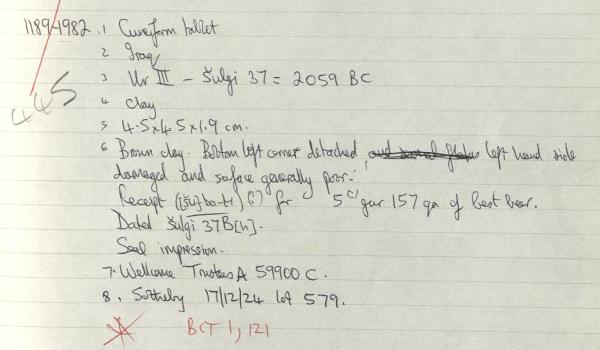 1189-1982 .1 Cuneiform tablet
2 Iraq
3 Ur III – Šulgi 37 = 2059 BC
445
4 Clay
5 4.5 x 4.5 x 1.9 cm.
6 Brown clay. Bottom left corner detached, left hand side
damaged and surface generally poor.
Receipt (šu ba-ti) (?) for 5(?) gur 157 qa of best beer.
Dated Šulgi 37B[h].
Seal impression.
7. Wellcome Trustees A 59900 C.
8. Sotheby 17/12/24 lot 579.
BCT 1, 121